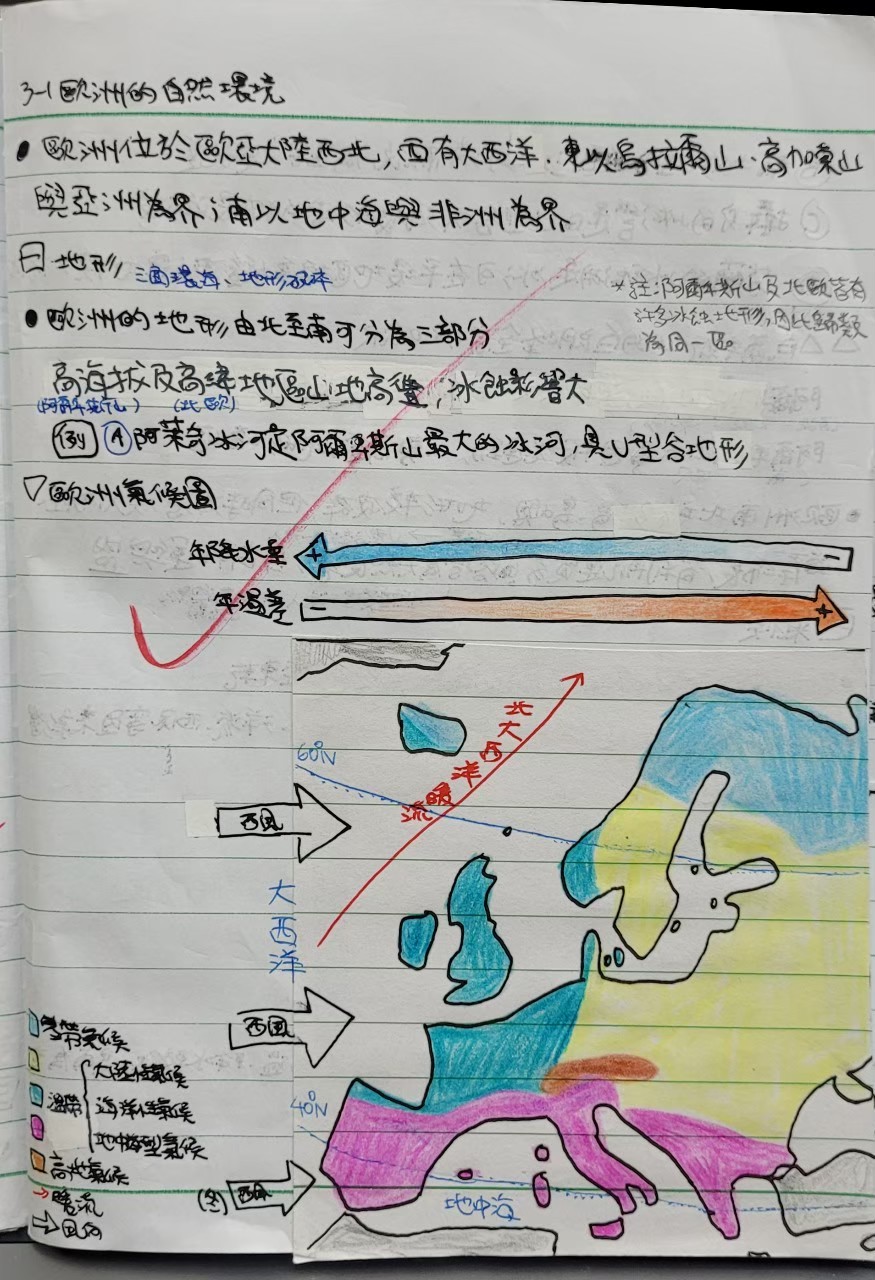 3-1歐洲的自然環境
• 歐洲位於歐亞大陸西北,西有大西洋、東以烏拉爾山、高加索山
與亞洲為界;南以地中海與非洲為界
曰地形 三面環海、地形破碎
*註:阿爾卑斯山及北歐皆有
許多冰蝕地形,因此歸類
為同一區。
• 歐洲的地形由北至南可分為三部分
高海拔及高緯地區山地高聳;冰蝕影響大
(阿爾卑斯山) (北歐)
例 A 阿萊奇冰河是阿爾卑斯山最大的冰河,具U型谷地形
▽歐洲氣候圖
年降水量 + -
年溫差 - +
60°N
北大西洋暖流
西風
大西洋
西風
40°N
西風
(冬)
地中海
寒帶氣候
溫帶 大陸性氣候
海洋性氣候
地中海型氣候
高地氣候
暖流
風向